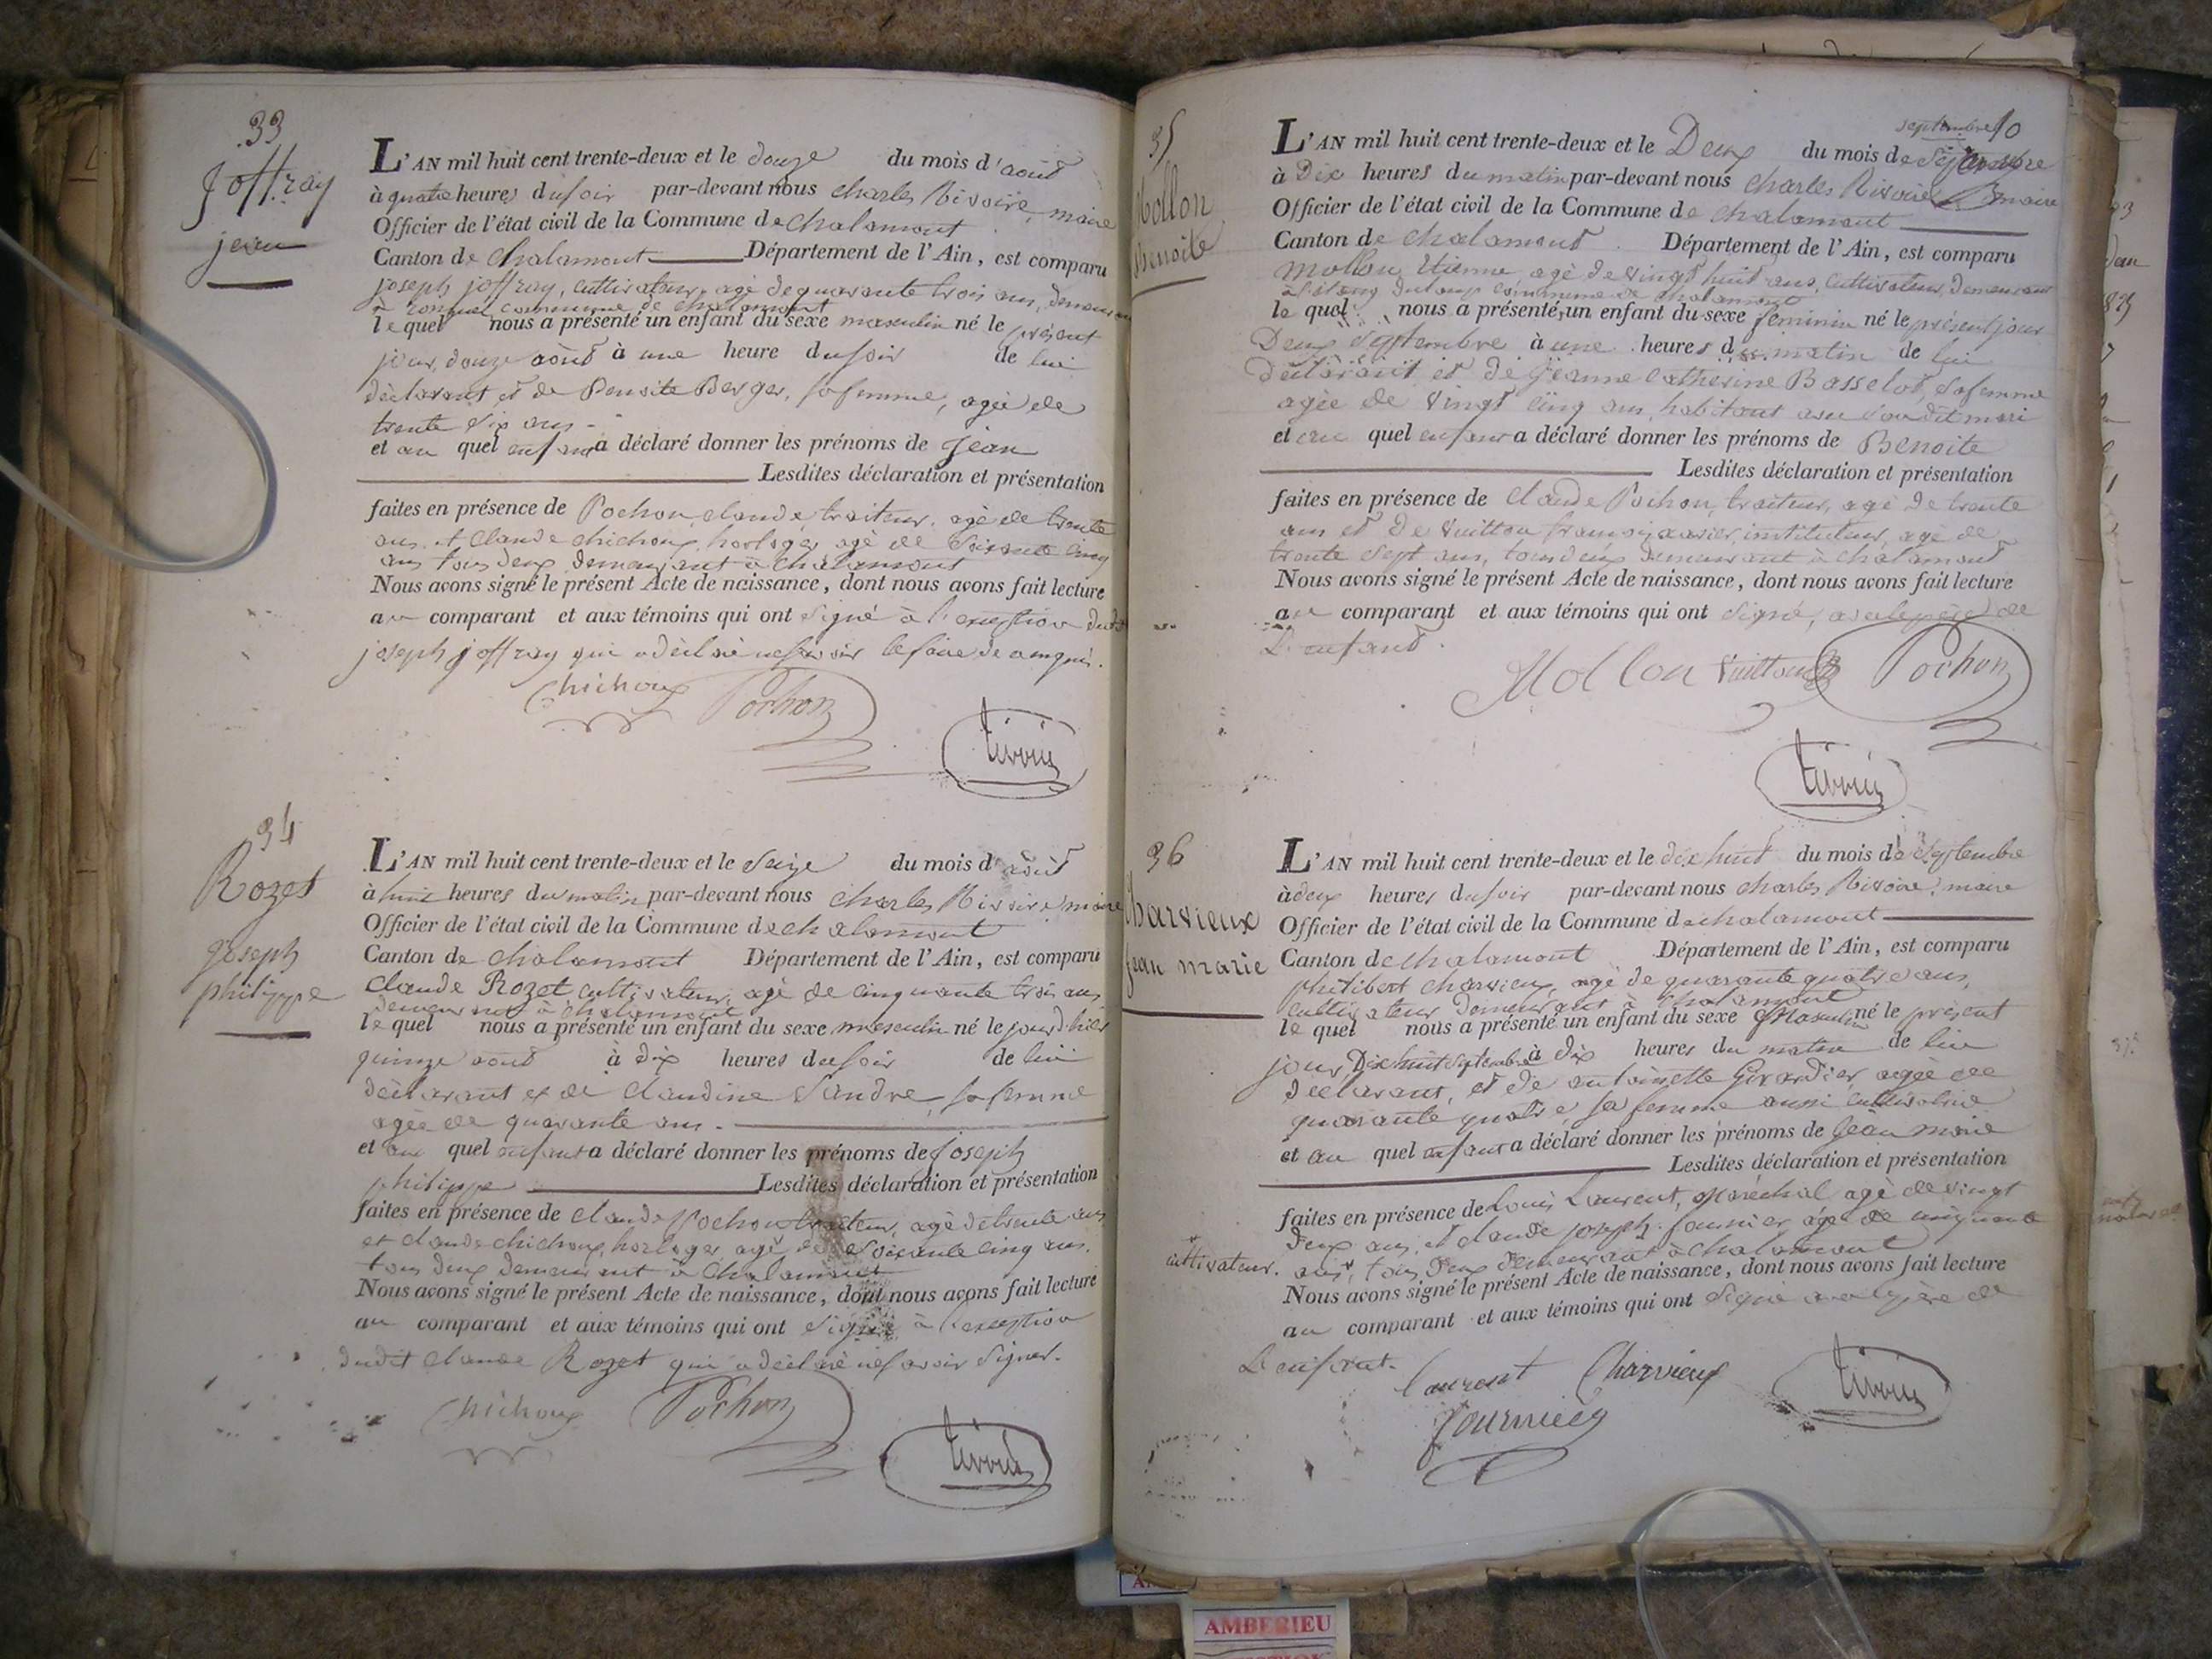 33
Joffray
jean
L'AN mil huit cent trente-deux et le douze du mois d'aoùt
à quatre heures du soir par-devant nous charles Rivoire, maire
Officier de l'état civil de la Commune de chalamont
Canton de Chalamont Département de l'Ain, est comparu
joseph joffray, cultivateur, agé de quarante trois ans, demeurant
à commune de chalamont
le quel nous a présenté un enfant du sexe masculin né le présent
jour, douze aoùt à une heure du soir de lui
déclarant et de Benoite Berger, sa femme, agée de
trente six ans -
et au quel enfant a déclaré donner les prénoms de jean
Lesdites déclaration et présentation
faites en présence de Pochon claude, traiteur, agé de trente
ans et Claude chichoux horloger agé de soixante cinq
ans tous deux demeurant à chalamont
Nous avons signé le présent Acte de naissance, dont nous avons fait lecture
au comparant et aux témoins qui ont signé à l'exception dudit
joseph joffray qui a déclaré ne savoir le faire de ce requis.
Chichoux Pochon
rivoire
34
Rozet
joseph
philippe
L'AN mil huit cent trente-deux et le seize du mois d'aoùt
à huit heures du matin par-devant nous charles Rivoire maire
Officier de l'état civil de la Commune de chalamont
Canton de chalamont Département de l'Ain, est comparu
claude Rozet cultivateur, agé de cinquante trois ans,
demeurant à chalamont
le quel nous a présenté un enfant du sexe masculin né le jour d'hier
quinze aout à dix heures du soir de lui
déclarant et de claudine Sandre, sa femme
agée de quarante ans. -
et au quel enfant a déclaré donner les prénoms de joseph
philippe Lesdites déclaration et présentation
faites en présence de claude pochon traiteur, agé de trente ans
et claude chichoux, horloger, agé de soixante cinq ans.
tous deux demeurant à Chalamont
Nous avons signé le présent Acte de naissance, dont nous avons fait lecture
au comparant et aux témoins qui ont signé à l'exception
dudit claude Rozet qui a déclaré ne savoir signer.
Chichoux Pochon
rivoire
35
Mollon
Benoite
septembre 10
L'AN mil huit cent trente-deux et le Deux du mois de
à Dix heures du matin par-devant nous charles Rivoire maire
Officier de l'état civil de la Commune de chalamont
Canton de chalamont Département de l'Ain, est comparu
Mollon, Etienne agé de vingt huit ans, cultivateur, demeurant
à l'étang du loup commune de chalamont
le quel nous a présenté un enfant du sexe feminin né le présent jour
Deux septembre à une heures du matin de lui
déclarant et de jeanne catherine Basselot, sa femme
agée de vingt cinq ans, habitant avec son dit mari
et au quel enfant a déclaré donner les prénoms de Benoite
Lesdites déclaration et présentation
faites en présence de claude Pochon, traiteur, agé de trente
ans et de Vuitton françoi xavier, instituteur, agé de
trente sept ans, tous deux demeurant à chalamont
Nous avons signé le présent Acte de naissance, dont nous avons fait lecture
au comparant et aux témoins qui ont signé, avec le père de
L'enfant.
Mollon Vuitton Pochon
rivoire
36
Charvieux
jean marie
L'AN mil huit cent trente-deux et le dix huit du mois de septembre
à deux heures du soir par-devant nous charles Rivoire, maire
Officier de l'état civil de la Commune de chalamont
Canton de chalamont Département de l'Ain, est comparu
philibert charvieux, agé de quarante quatre ans,
cultivateur demeurant à chalamont
le quel nous a présenté un enfant du sexe Masculin né le présent
jour, Dix huit septembre à dix heures du matin de lui
déclarant, et de antoinette Girardier, agée de
quarante quatre, sa femme aussi cultivatrice
et au quel enfant a déclaré donner les prénoms de jean marie
Lesdites déclaration et présentation
faites en présence de Louis Laurent, maréchal agé de vingt
deux ans, et claude joseph fournier, agé de cinquante
cultivateur. ans, tous deux demeurant à chalamont
Nous avons signé le présent Acte de naissance, dont nous avons fait lecture
au comparant et aux témoins qui ont signé avec le père de
L'enfant.
laurent Charvieux
rivoire
fournier
AMBERIEU